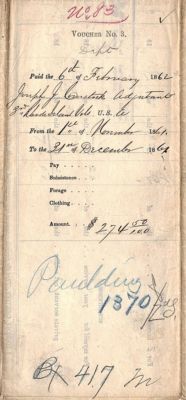 No. 83
VOUCHER No. 3.
Dept
Paid the 6th of February 1862
Joseph J. Comstock Adjutant
3rd Rhode Island Vols. U.S.
From the 1st of November 1861,
To the 31st of December 1861
Pay . . . .
Subsistence . . . .
Forage . . . .
Clothing . . . .
Amount, $ 274 50/100
Paulding
1370
Bx 417